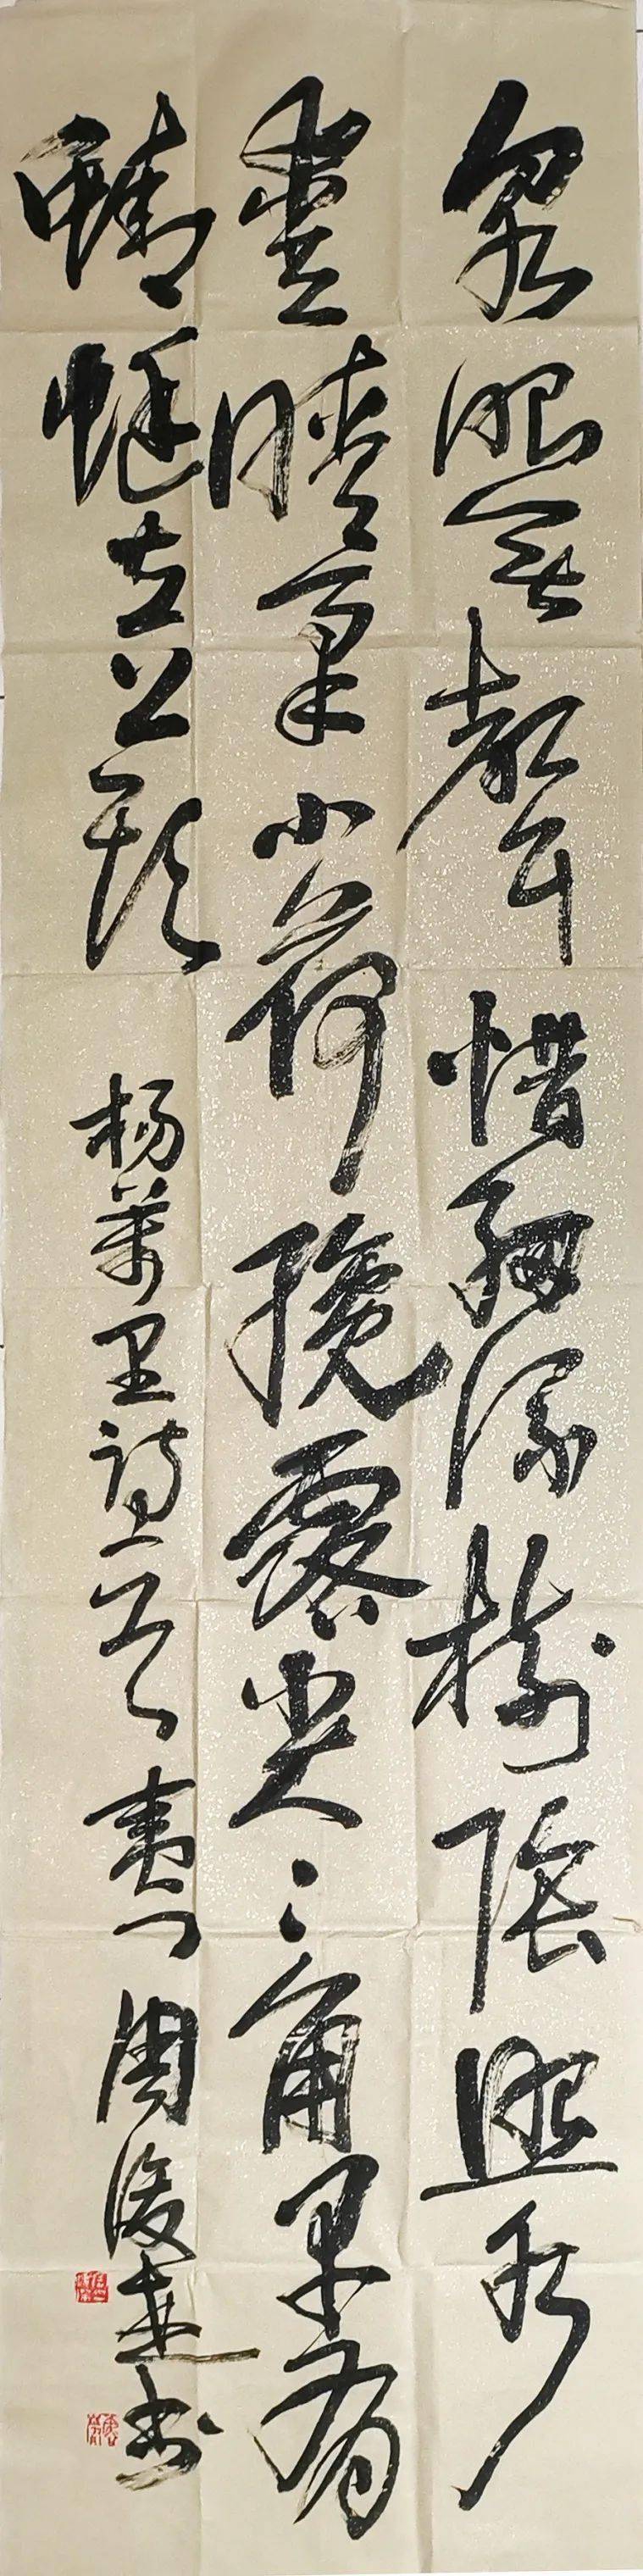 泉眼無聲惜細流樹陰照水
愛晴柔小荷纔露尖〻角早有
蜻蜓立上頭 杨萬里詩一首 周 書